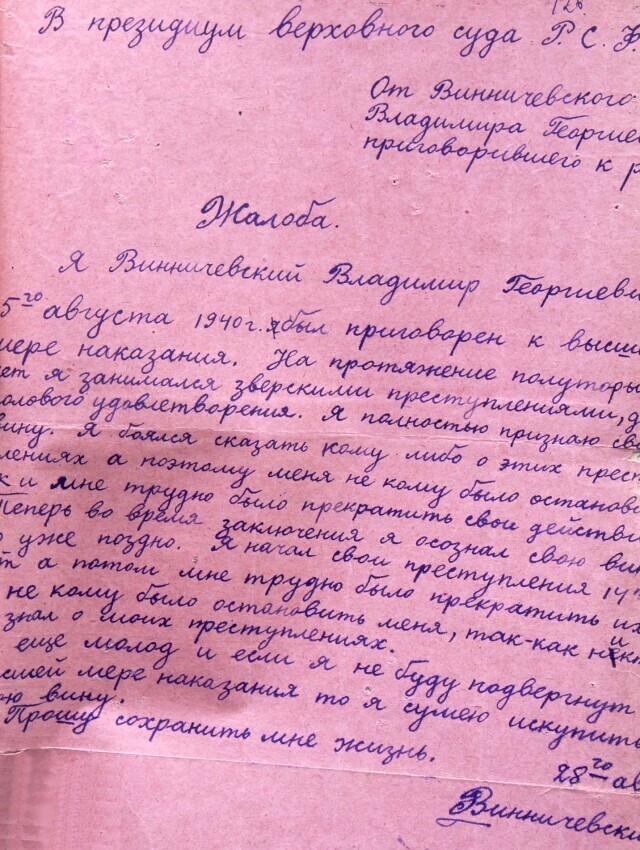 126
В президиум верховного суда Р. С. Ф
От Винничевского
Владимира Георгие
приговорившего к р
Жалоба.
Я Винничевский Владимир Георгиеви
5го августа 1940 г. я был приговорен к высш
мере наказания. На протяжение полуторы
ет я занимался зверскими преступлениями, д
олового удовлетворения. Я полностью признаю св
вину. Я боялся сказать кому либо о этих прест
лениях а поэтому меня не кому было останово
к и мне трудно было прекратить свои действи
Теперь во время заключения я осознал свою вин
о уже поздно. Я начал свои преступления
т а потом мне трудно было прекратить их
не кому было остановить меня, так-как ник
знал о моих преступлениях.
еще молод и если я не буду подвергнут
сшей мере наказания то я сумею искупить
ою вину.
Прошу сохранить мне жизнь.
28го ав
Винничевски